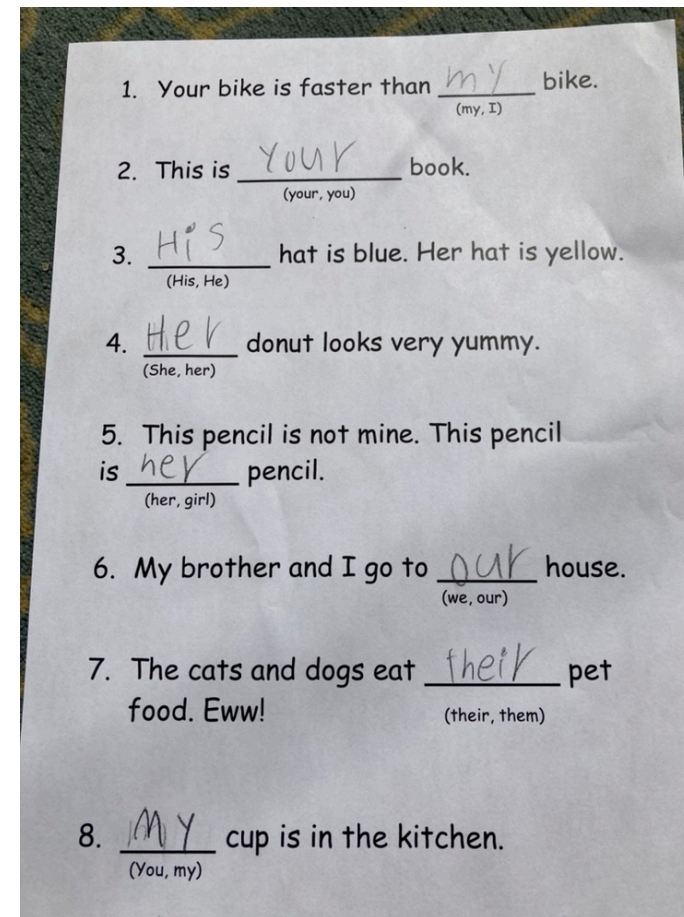 1. Your bike is faster than my bike.
(my, I)
2. This is your book.
(your, you)
3. His hat is blue. Her hat is yellow.
(His, He)
4. Her donut looks very yummy.
(She, her)
5. This pencil is not mine. This pencil
is her pencil.
(her, girl)
6. My brother and I go to our house.
(we, our)
7. The cats and dogs eat their pet
food. Eww!
(their, them)
8. My cup is in the kitchen.
(You, my)